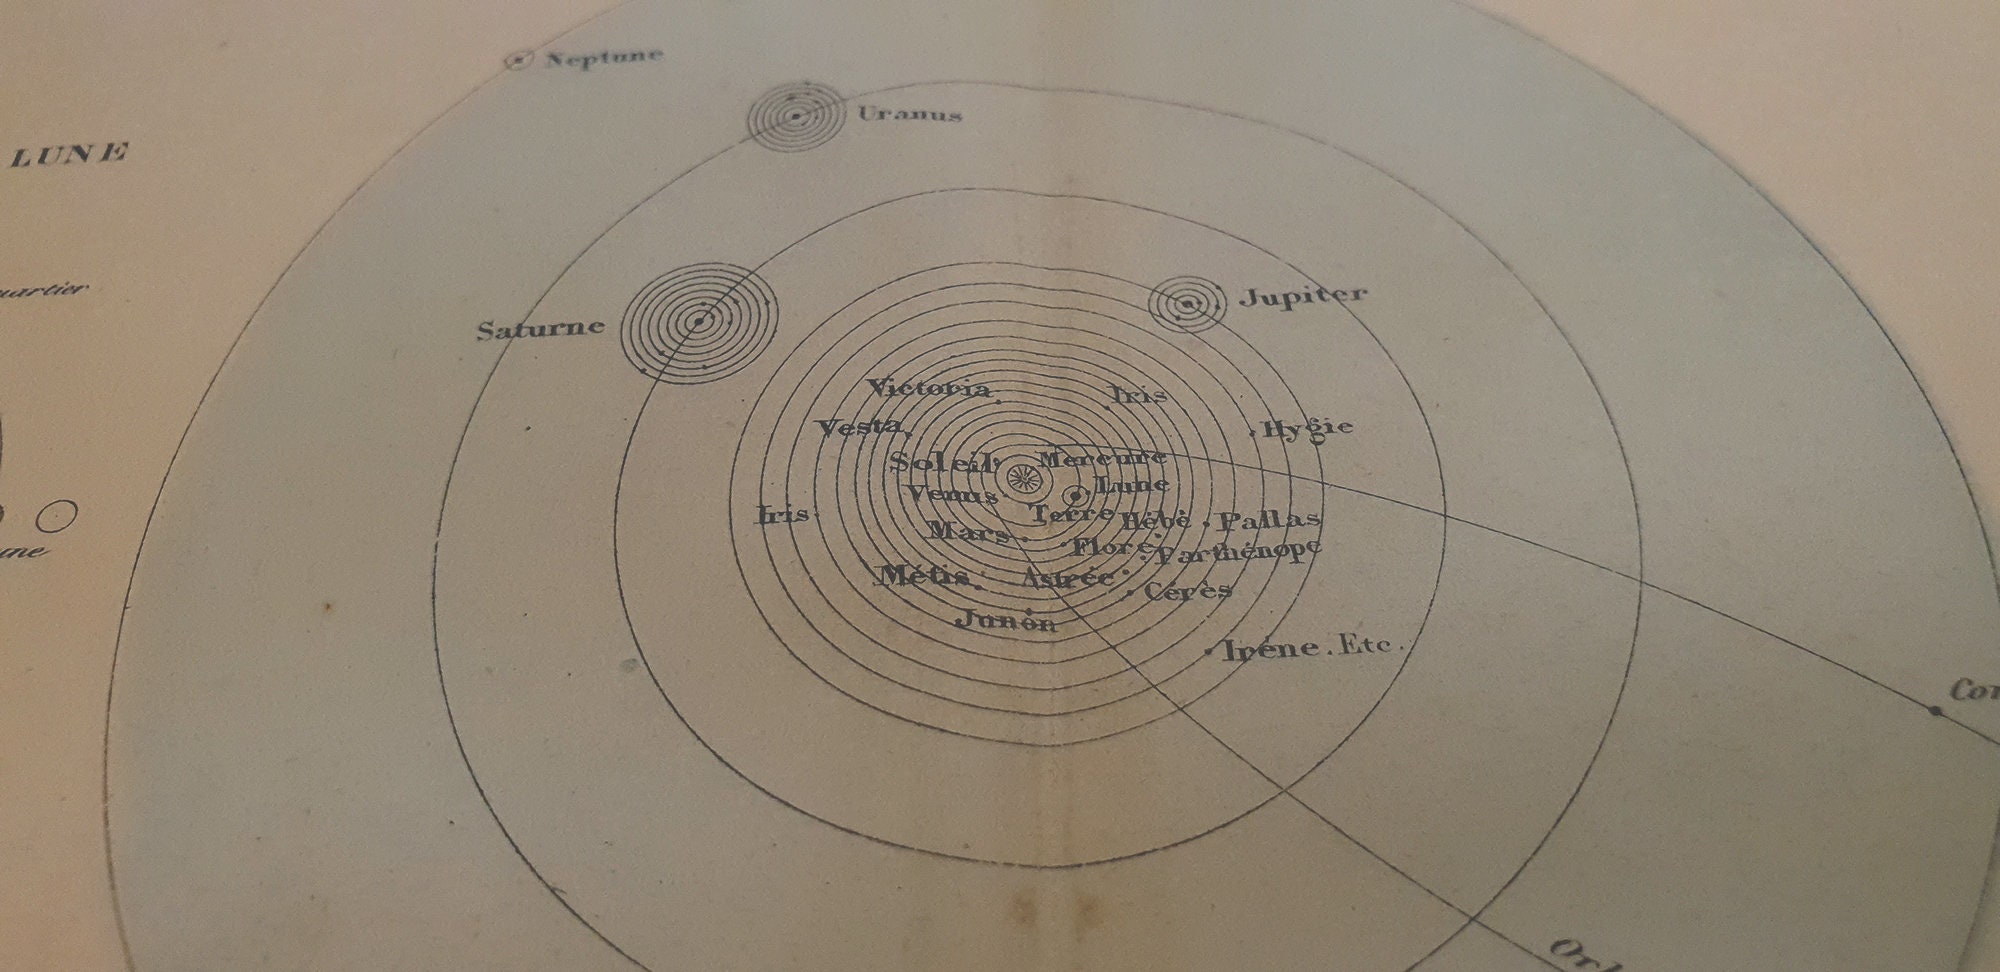 Neptune
Uranus
LUNE
uartier
Jupiter
Saturne
Victoria
Iris
Vesta
Hygie
Soleil
Mercure
Lune
Venus
Iris
Terre
Hébè
Pallas
Mars
Flore
Parthénope
Métis
Astrée
Cérès
Junon
Irène. Etc.
une
Con
Orb